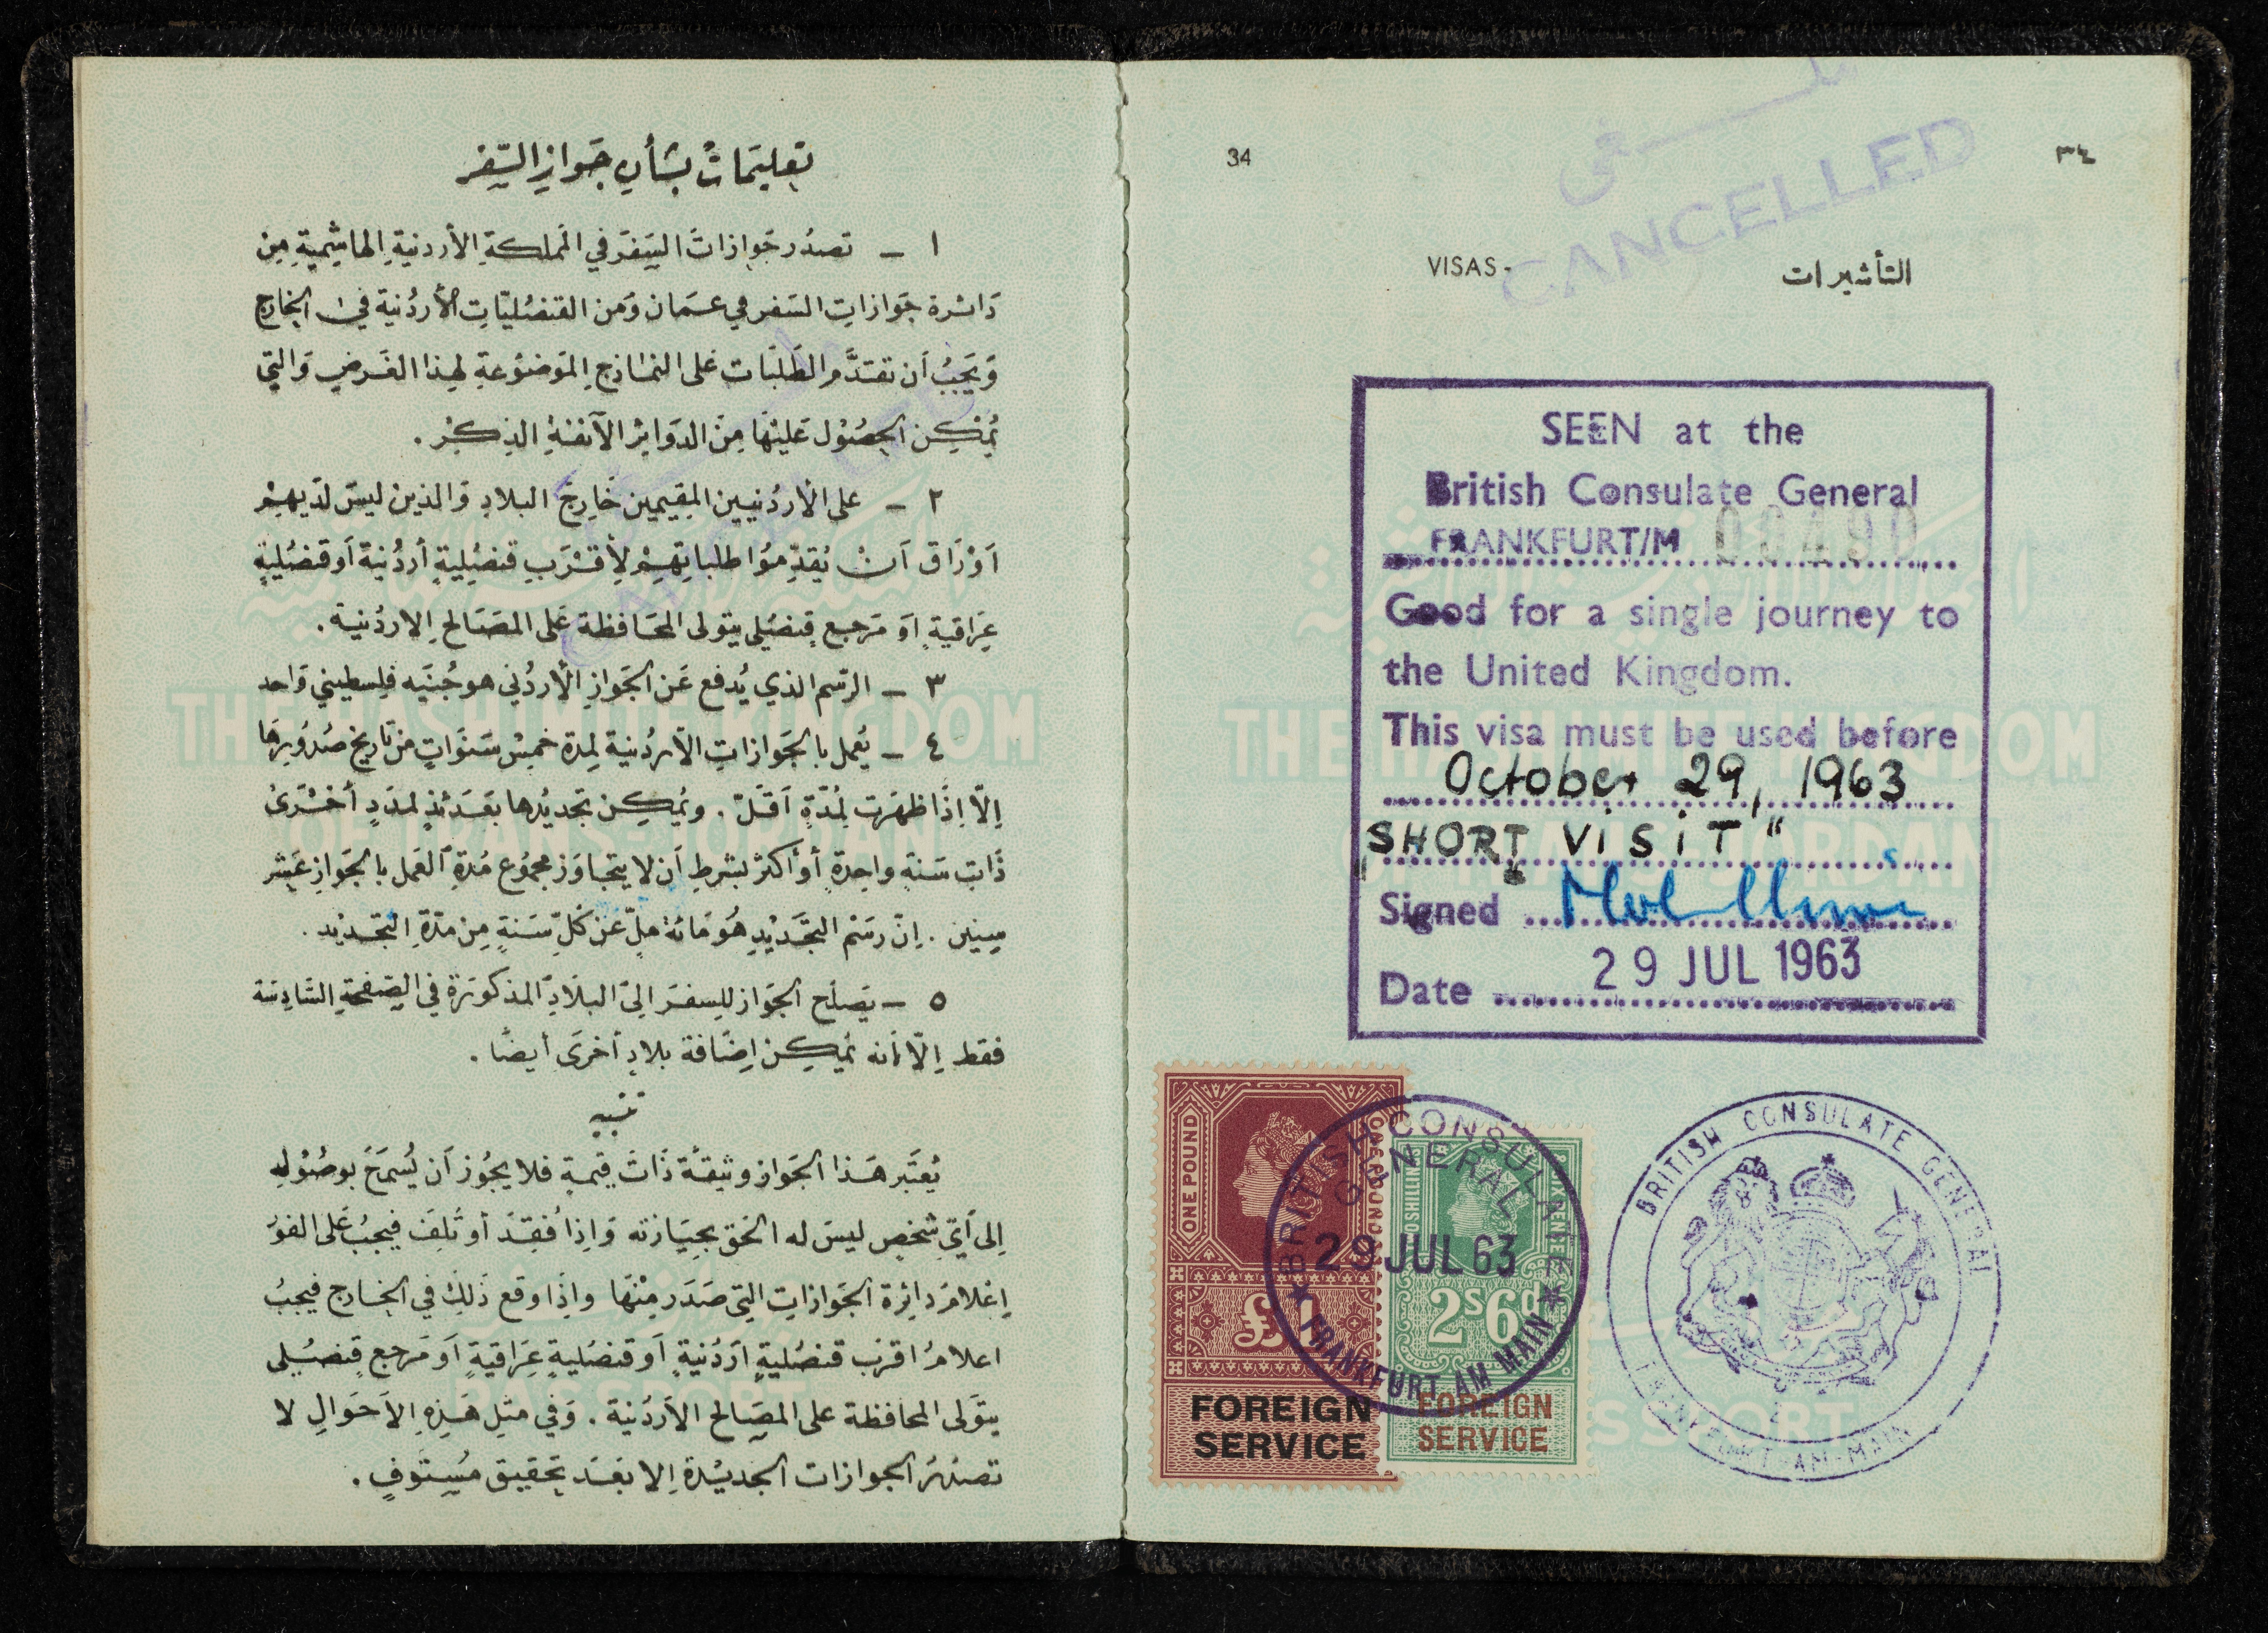 تعليمات بشأن جواز السفر
١ - تصدر جوازات السفر في المملكة الأردنية الهاشمية من
دائرة جوازات السفر في عمان ومن القنصليات الأردنية في الخارج
ويجب أن تقدم الطلبات على النماذج الموضوعة لهذا الغرض والتي
يمكن الحصول عليها من الدوائر الآنفة الذكر .
٢ - على الأردنيين المقيمين خارج البلاد والذين ليس لديهم
أوراق أن يقدموا طلباتهم لأقرب قنصلية أردنية أو قنصلية
عراقية أو مرجع قنصلي يتولى المحافظة على المصالح الاردنية .
٣ - الرسم الذي يدفع عن الجواز الأردني هو جنيه فلسطيني واحد
٤ - يعمل بالجوازات الاردنية لمدة خمس سنوات من تاريخ صدورها
إلا إذا ظهرت لمدة أقل . ويمكن تجديدها بعدئذ لمدد أخرى
ذات سنة واحدة أو أكثر بشرط أن لا يتجاوز مجموع مدة العمل بالجواز عشر
سنين . إن رسم التجديد هو مائة مل عن كل سنة من مدة التجديد .
٥ - يصلح الجواز للسفر الى البلاد المذكورة في الصفحة السادسة
فقط إلا أنه يمكن إضافة بلاد أخرى أيضا .
تنبيه
يعتبر هذا الجواز وثيقة ذات قيمة فلا يجوز أن يسمح بوصوله
إلى أي شخص ليس له الحق بحيازته وإذا فقد أو تلف فيجب على الفور
إعلام دائرة الجوازات التي صدر منها وإذا وقع ذلك في الخارج فيجب
اعلام اقرب قنصلية أردنية أو قنصلية عراقية أو مرجع قنصلي
يتولى المحافظة على المصالح الأردنية . وفي مثل هذه الأحوال لا
تصدر الجوازات الجديدة إلا بعد تحقيق مستوف .
THE HASHIMITE KINGDOM
OF TRANS-JORDAN
PASSPORT
34
٣٤
ملغى
CANCELLED
VISAS-
التأشيرات
SEEN at the
British Consulate General
FRANKFURT/M 00490
Good for a single journey to
the United Kingdom.
This visa must be used before
October 29, 1963
"SHORT VISIT"
Signed
Date 29 JUL 1963
THE HASHIMITE KINGDOM
OF TRANS-JORDAN
PASSPORT
ONE POUND
£1
FOREIGN
SERVICE
2s6d
FOREIGN
SERVICE
BRITISH CONSULATE
GENERAL
29 JUL 63
FRANKFURT AM MAIN
BRITISH CONSULATE GENERAL
FRANKFURT-AM-MAIN